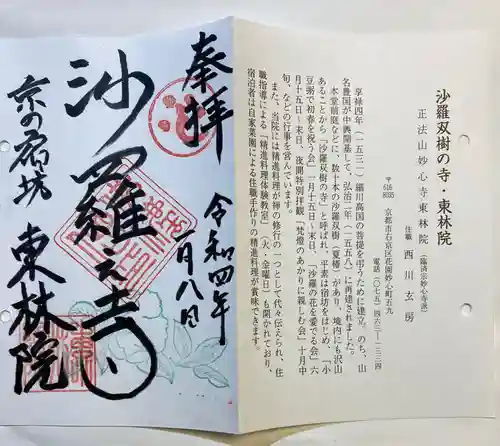 奉拝
令和四年
一月八日
沙羅之寺
京の宿坊
東林院
沙羅双樹の寺・東林院
正法山妙心寺東林院(臨済宗妙心寺派)
住職 西川玄房
〒616-8035 京都市右京区花園妙心町五九
電話(〇七五)四六三-一三三四
享禄四年(一五三一)細川高国の菩提を弔うために建立。のち、山
名豊国が中興開基して、弘治二年(一五五六)に再建されました。
本堂前庭などに、数十本の沙羅双樹(夏椿)があり、境内にも沢山
あることから「沙羅双樹の寺」と呼ばれ、平素は宿坊をはじめ、「小
豆粥で初春を祝う会」一月十五日〜末日、「沙羅の花を愛でる会」六
月十五日〜末日、夜間特別拝観「梵燈のあかりに親しむ会」十月中
旬、などの行事を営んでいます。
また、当院には精進料理が禅の修行の一つとして代々伝えられ、住
職指導による「精進料理体験教室」(火、金曜日)も開かれており、
宿泊者は自家菜園による住職手作りの精進料理が賞味できます。